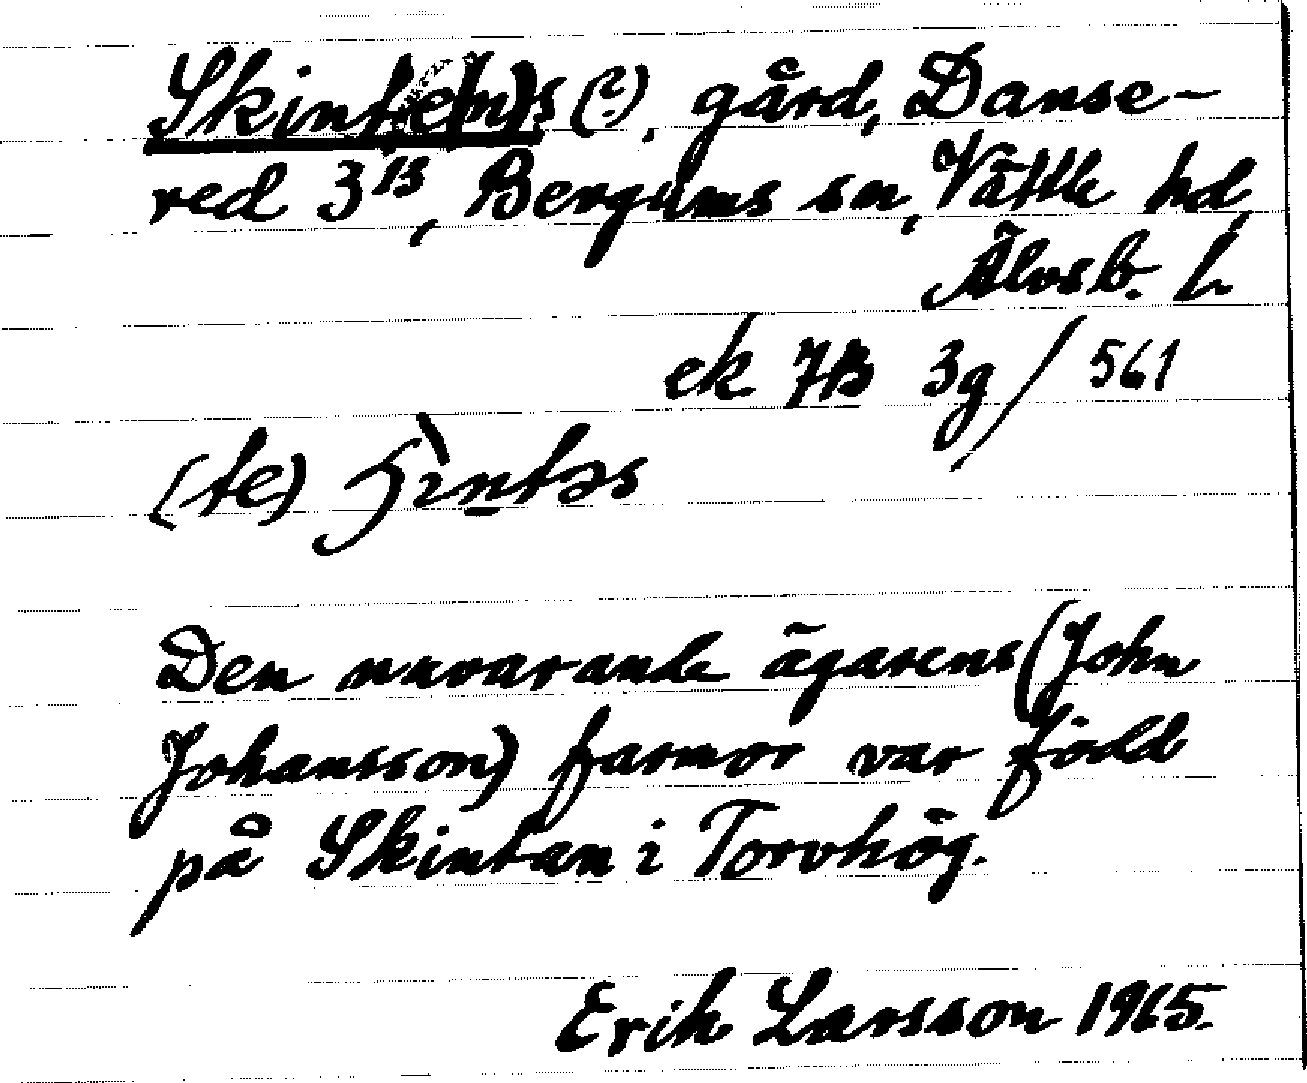 Skinte(n)s (?), gård, Danse-
red 3¹³, Bergums sn, Vättle hd,
Älvsb. l.
ek 7B 3g / 561
(te) ʃìntəs
Den nuvarande ägarens (John
Johansson) farmor var född
på Skintan i Torvhög.
Erik Larsson 1965.